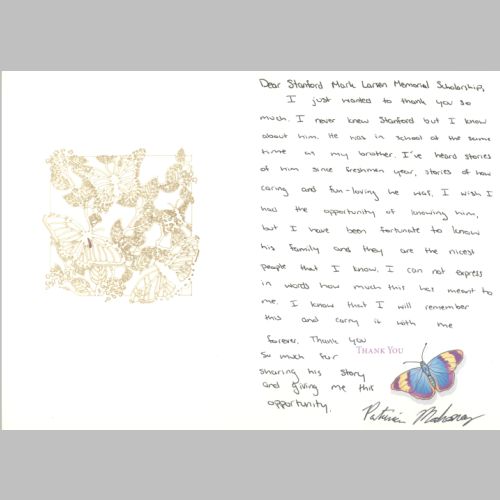 Dear Stanford Mark Larsen Memorial Scholarship,
I just wanted to thank you so
much. I never knew Stanford but I know
about him. He was in school at the same
time as my brother. I've heard stories
of him since freshmen year, stories of how
caring and fun-loving he was. I wish I
had the opportunity of knowing him,
but I have been fortunate to know
his family and they are the nicest
people that I know. I can not express
in words how much this has meant to
me. I know that I will remember
this and carry it with me
forever. Thank you
so much for
sharing his story
and giving me this
opportunity.
THANK YOU
Patricia